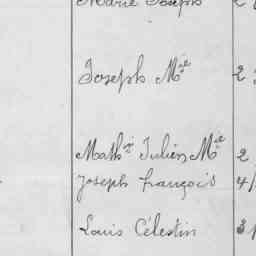 Marie Joseph 2
Joseph Mie 2
Mathé Julien Mie 2
Joseph françois 4/
Louis Célestin 3